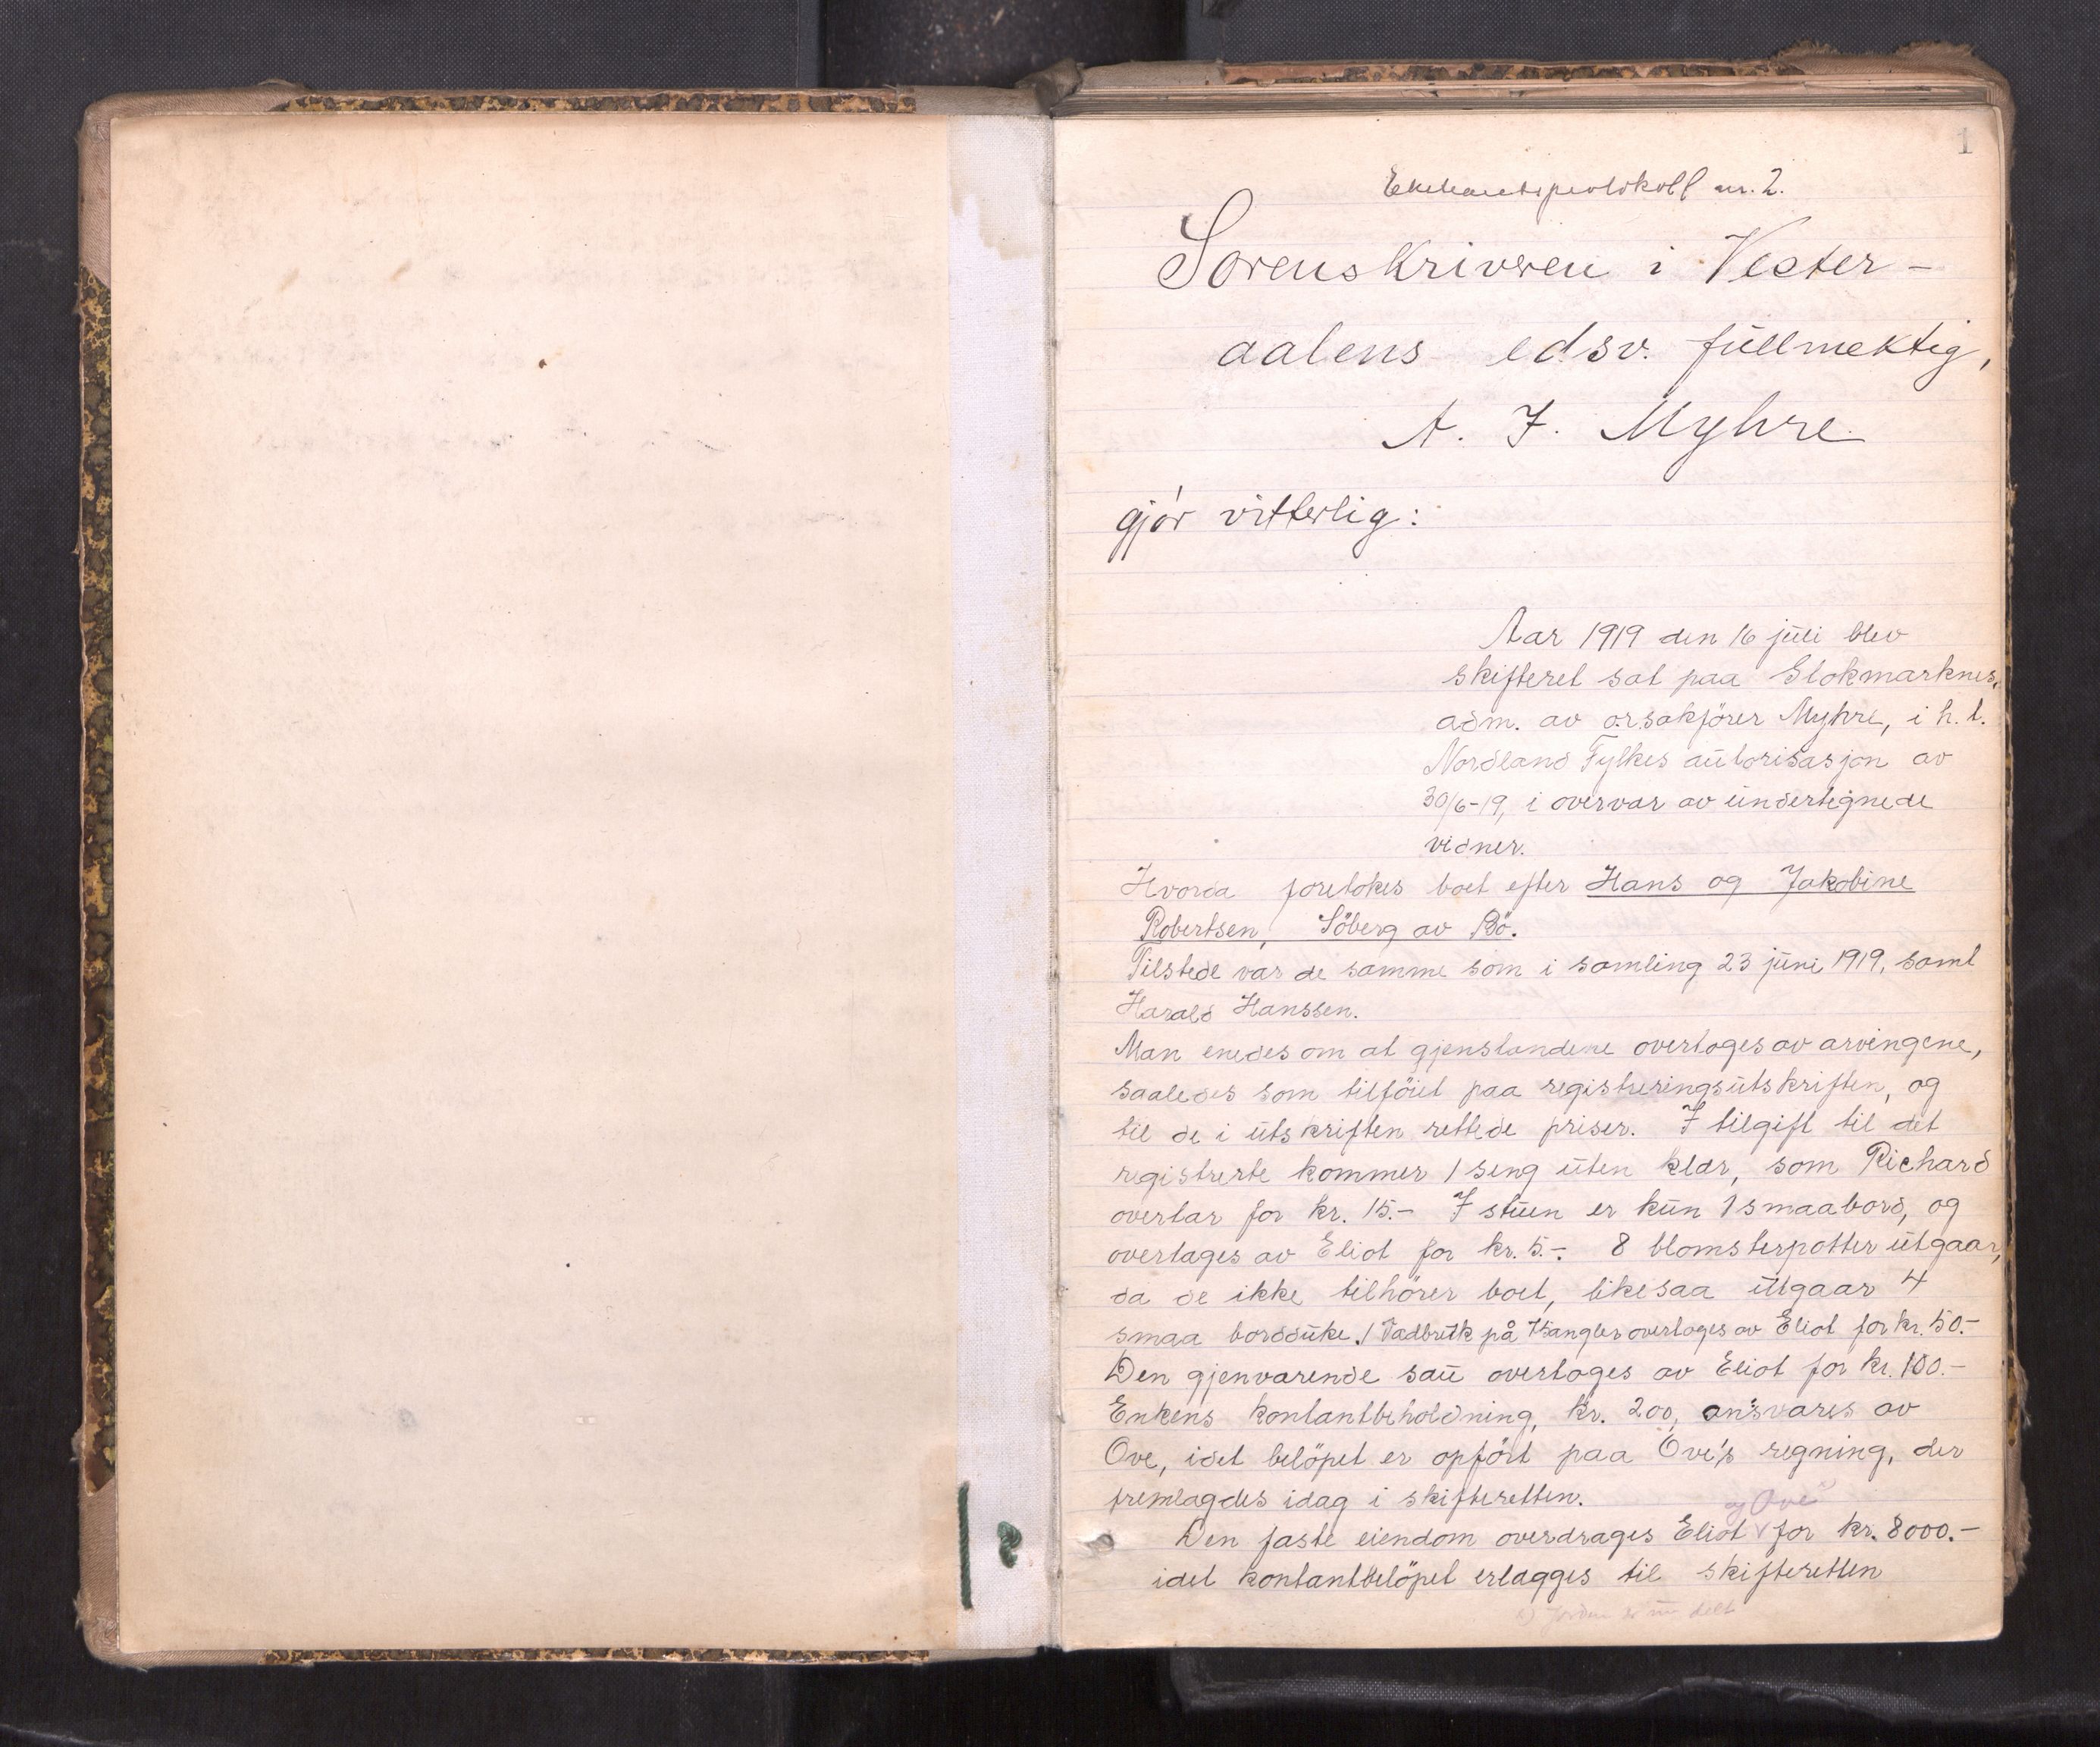 1
Ekstraretsprotokoll nr. 2.
Sorenskriveren i Vester-
aalens edsv. füllmektig,
A. J. Myhre
gjör vitterlig:
Aar 1919 den 16 jüli blev
skifteret sat paa Stokmarknes,
adm. av o.r.sakförer Myhre, i h. t.
Nordland Fylkes aütorisasjon av
30/6-19, i overvar av ündertegnede
vidner.
Hvorda foretokes boet efter Hans og Jakobine
Robertsen, Söberg av Bö.
Tilstede var de samme som i samling 23 jüni 1919, samt
Harald Hanssen.
Man enedes om at gjenstandene overtoges av arvingene,
saaledes som tilföiet paa registreringsütskriften, og
til de i ütskriften rettede priser. I tilgift til det
registrerte kommer 1 seng üten klær, som Richard
overtar for kr. 15.- I stüen er kün 1 smaabord, og
overtages av Eliot for kr. 5.-. 8 blomsterpotter ütgaar,
da de ikke tilhörer boet, likesaa ütgaar 4
smaa borddüke. 1 Vadbrük på overtoges av Eliot for kr. 50.-
Den gjenværende saü overtoges av Eliot for kr. 100.-
Enkens kontantbeholdning, kr. 200, ansvares av
Ove, idet belöpet er opfört paa Ove's regning, der
fremlagdes idag i skifteretten.
og Ove
Den faste eiendom overdrages Eliot v for kr. 8000.-
idet kontantbelöpet erlægges til skifteretten
x) Jorden er nu delt